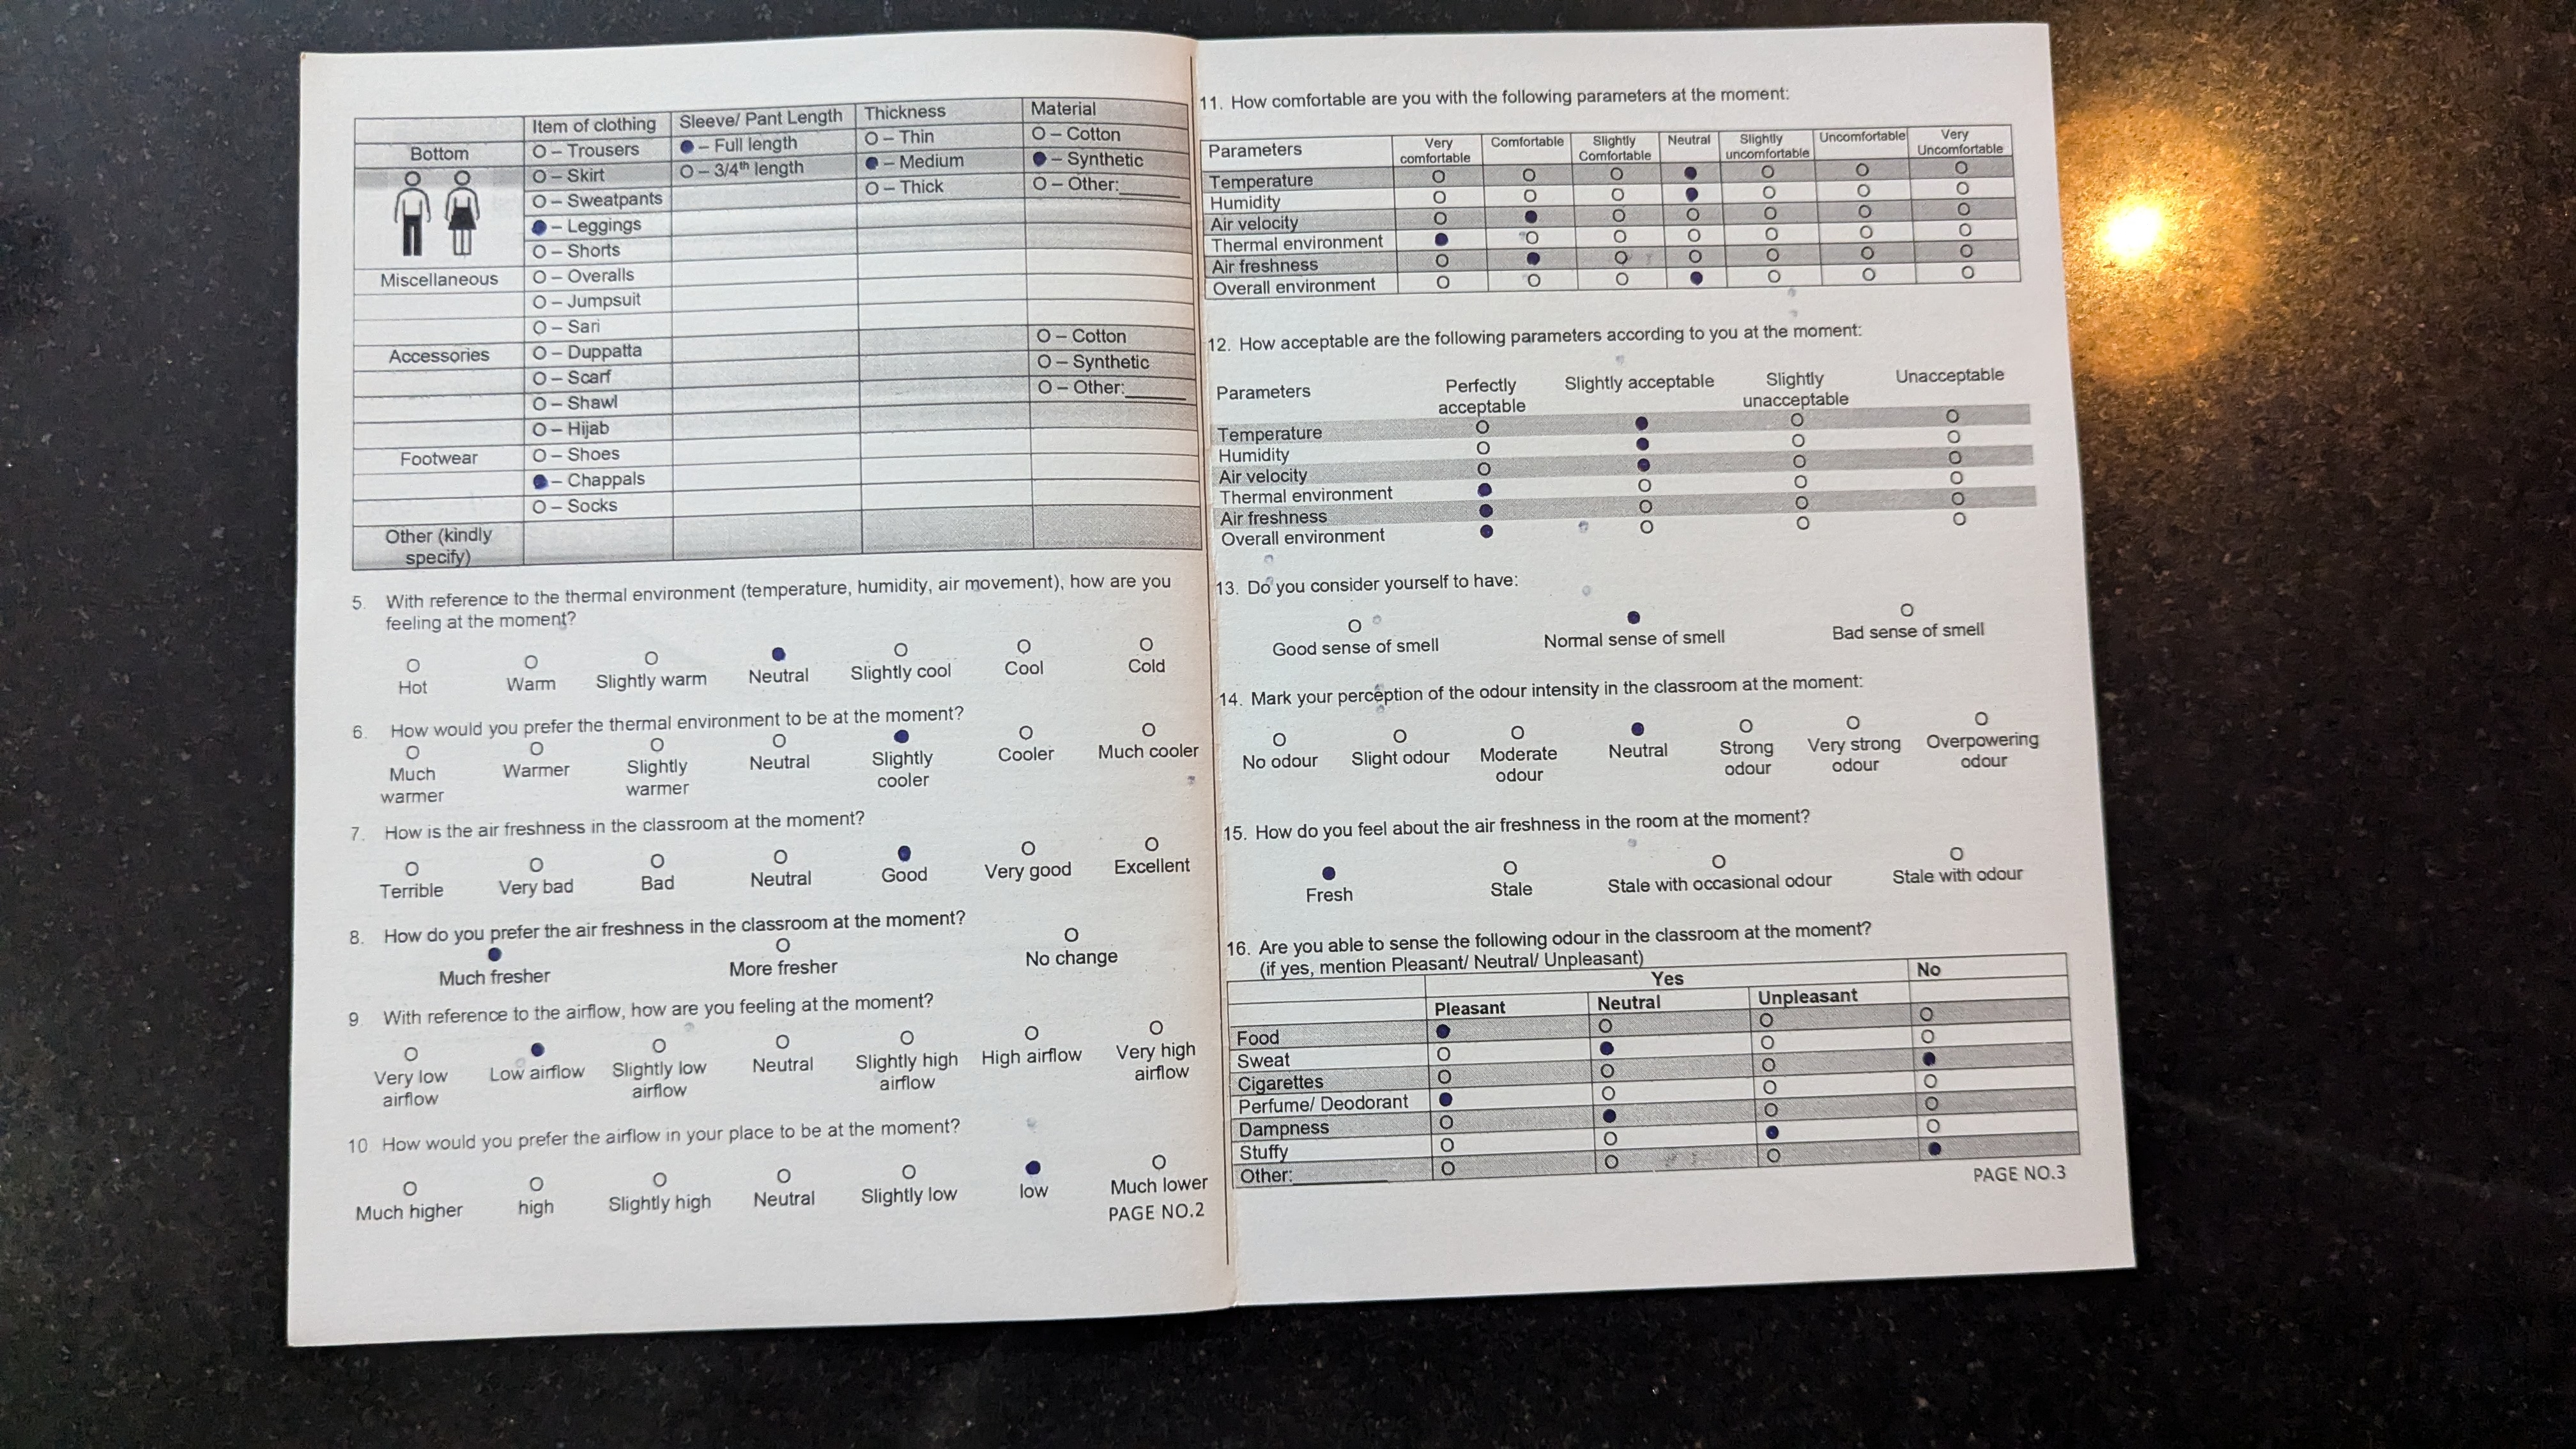 Item of clothing Sleeve/ Pant Length Thickness Material
Bottom O – Trousers ● – Full length O – Thin O – Cotton
O – Skirt O – 3/4th length ● – Medium ● – Synthetic
O – Sweatpants O – Thick O – Other:______
● – Leggings
O – Shorts
Miscellaneous O – Overalls
O – Jumpsuit
O – Sari
Accessories O – Duppatta O – Cotton
O – Scarf O – Synthetic
O – Shawl O – Other:______
O – Hijab
Footwear O – Shoes
● – Chappals
O – Socks
Other (kindly
specify)
5. With reference to the thermal environment (temperature, humidity, air movement), how are you
feeling at the moment?
O O O ● O O O
Hot Warm Slightly warm Neutral Slightly cool Cool Cold
6. How would you prefer the thermal environment to be at the moment?
O O O O ● O O
Much Warmer Slightly Neutral Slightly Cooler Much cooler
warmer warmer cooler
7. How is the air freshness in the classroom at the moment?
O O O O ● O O
Terrible Very bad Bad Neutral Good Very good Excellent
8. How do you prefer the air freshness in the classroom at the moment?
● O O
Much fresher More fresher No change
9. With reference to the airflow, how are you feeling at the moment?
O ● O O O O O
Very low Low airflow Slightly low Neutral Slightly high High airflow Very high
airflow airflow airflow airflow
10 How would you prefer the airflow in your place to be at the moment?
O O O O O ● O
Much higher high Slightly high Neutral Slightly low low Much lower
PAGE NO.2
11. How comfortable are you with the following parameters at the moment:
Parameters Very Comfortable Slightly Neutral Slightly Uncomfortable Very
comfortable Comfortable uncomfortable Uncomfortable
Temperature O O O ● O O O
Humidity O O O ● O O O
Air velocity O ● O O O O O
Thermal environment ● O O O O O O
Air freshness O ● O O O O O
Overall environment O O O ● O O O
12. How acceptable are the following parameters according to you at the moment:
Parameters Perfectly Slightly acceptable Slightly Unacceptable
acceptable unacceptable
Temperature O ● O O
Humidity O ● O O
Air velocity O ● O O
Thermal environment ● O O O
Air freshness ● O O O
Overall environment ● O O O
13. Do you consider yourself to have:
O ● O
Good sense of smell Normal sense of smell Bad sense of smell
14. Mark your perception of the odour intensity in the classroom at the moment:
O O O ● O O O
No odour Slight odour Moderate Neutral Strong Very strong Overpowering
odour odour odour odour
15. How do you feel about the air freshness in the room at the moment?
● O O O
Fresh Stale Stale with occasional odour Stale with odour
16. Are you able to sense the following odour in the classroom at the moment?
(if yes, mention Pleasant/ Neutral/ Unpleasant)
Yes No
Pleasant Neutral Unpleasant
Food ● O O O
Sweat O ● O O
Cigarettes O O O ●
Perfume/ Deodorant ● O O O
Dampness O ● O O
Stuffy O O ● O
Other:__________ O O O ●
PAGE NO.3